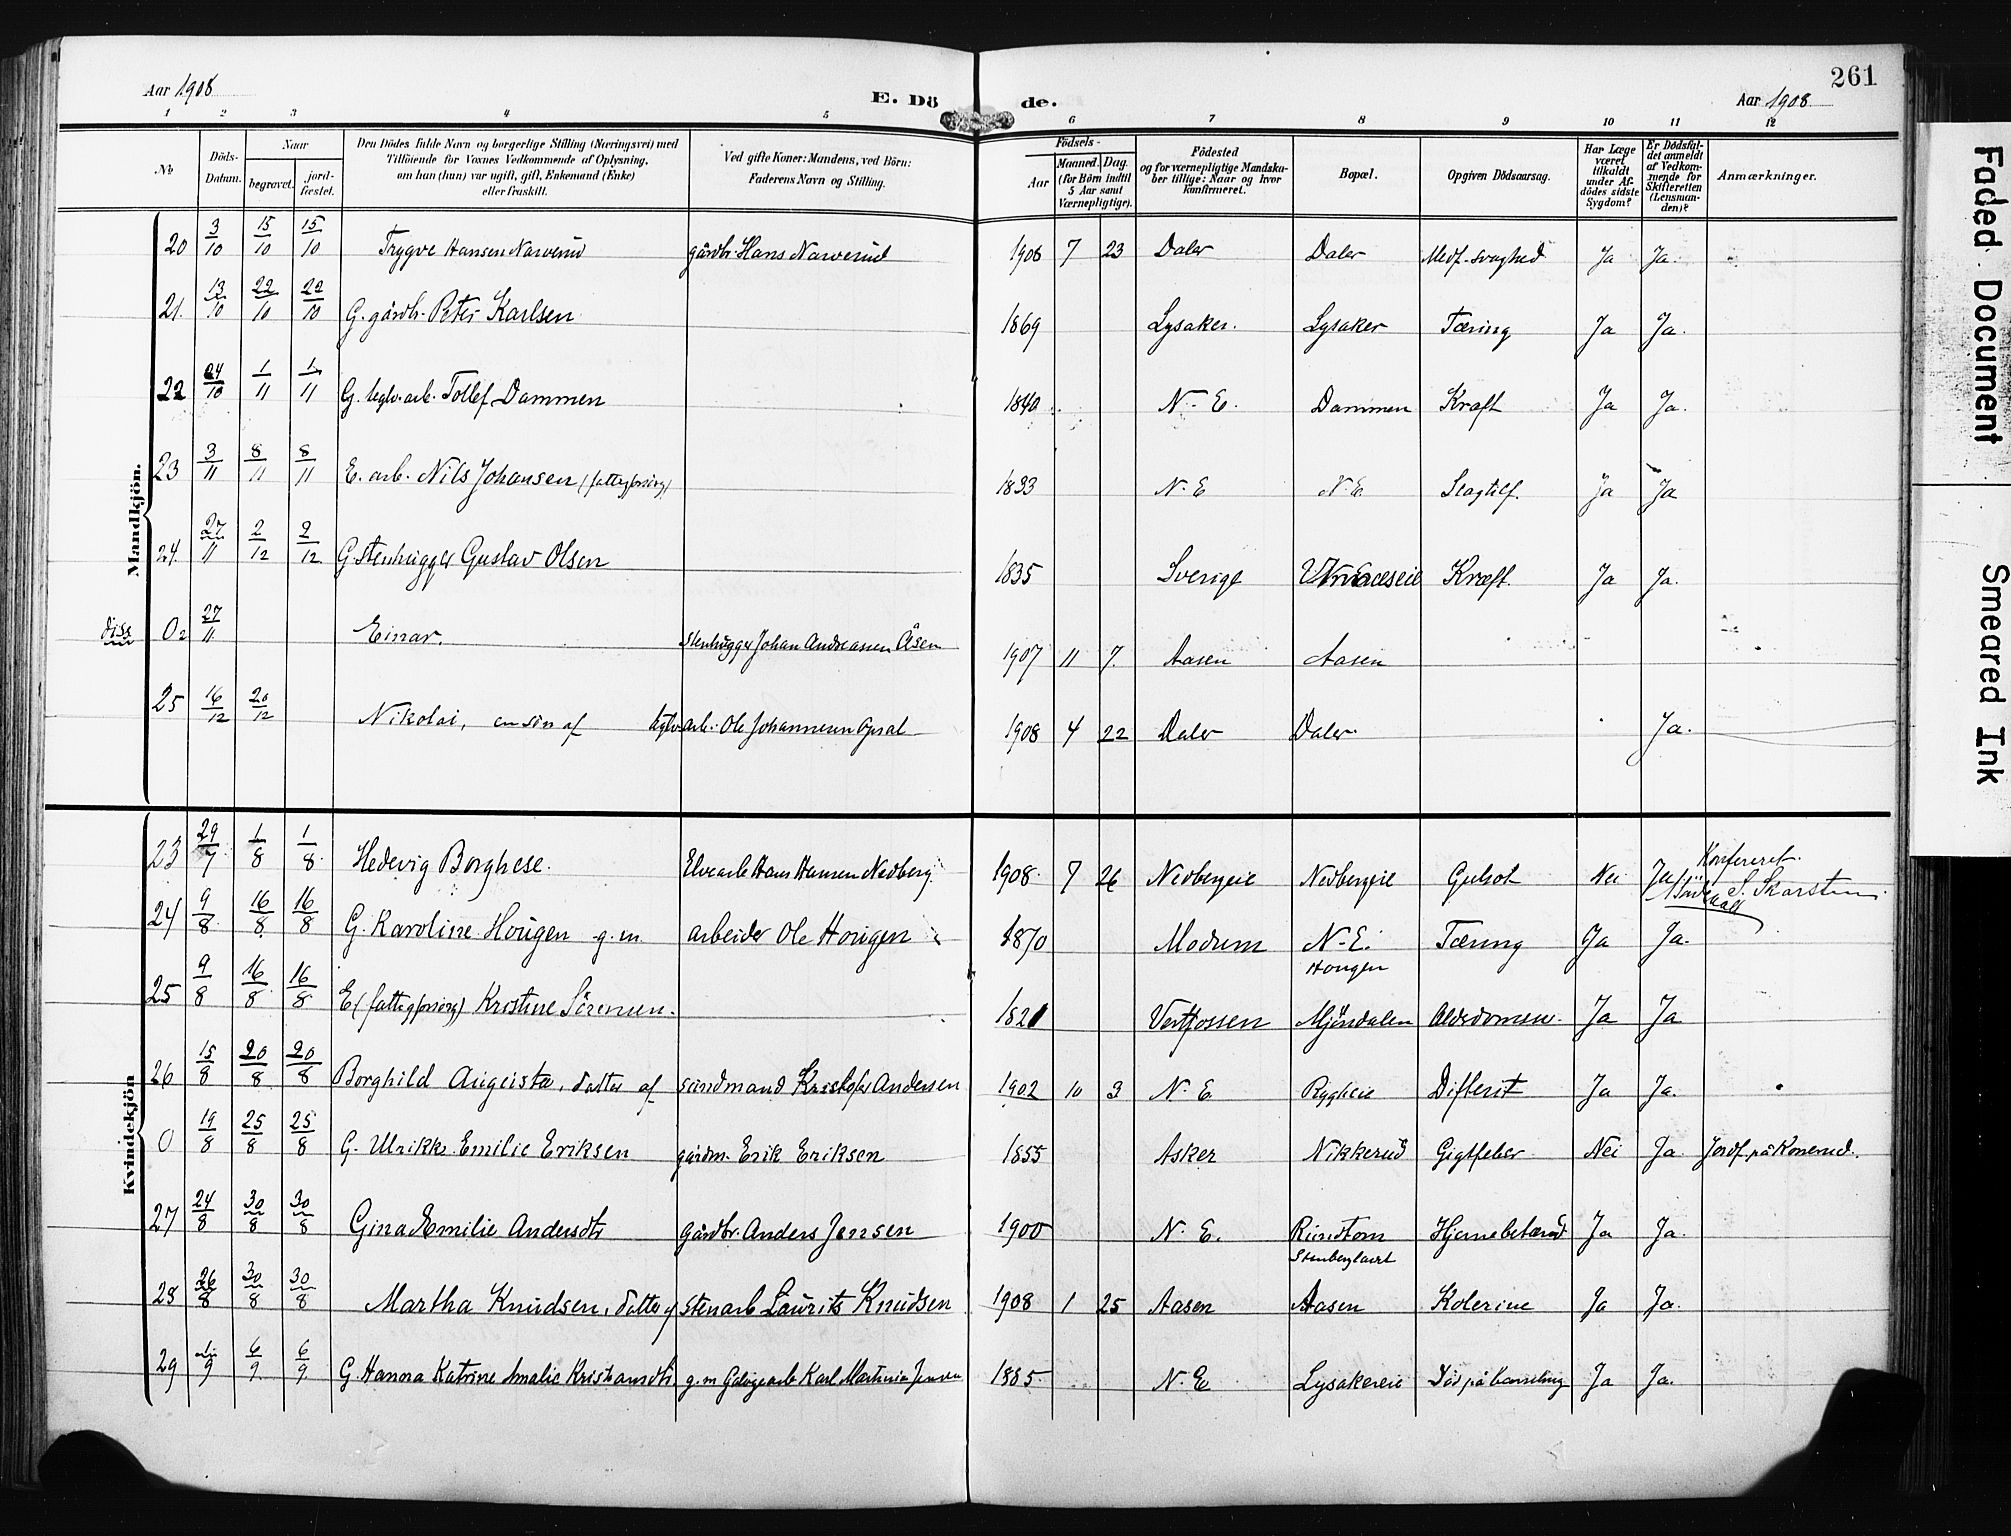 Aar 1908
E. Dö de.
Aar 1908
261
1 2 3 4 5 6 7 8 9 10 11 12
No
Döds-Datum.
Naar
begravet.
jord-fæstet.
Den Dödes fulde Navn og borgerlige Stilling (Næringsvei) med Tilföiende for Voxnes Vedkommende af Oplysning, om han (hun) var ugift, gift, Enkemand (Enke) eller fraskilt.
Ved gifte Koner: Mandens, ved Börn: Faderens Navn og Stilling.
Födsels-
Aar
Maaned. Dag.
(for Börn indtil 5 Aar samt Værnepligtige).
Födested og for værnepligtige Mandskaber tillige: Naar og hvor konfirmeret.
Bopæl.
Opgiven Dödsaarsag.
Har Læge været tilkaldt under Afdödes sidste Sygdom?
Er Dödsfaldet anmeldt af Vedkommende for Skifteretten (Lensmanden)?
Anmærkninger.
Mandkjön.
20 3/10 15/10 15/10 Trygve Hansen Narverud gårdbr Hans Narverud 1908 7 23 Daler Daler Medf. svaghed Ja Ja.
21. 13/10 22/10 22/10 G. gårdb. Peter Karlsen 1869 Lysaker. Lysaker Tæring Ja Ja.
22 24/10 1/11 1/11 G. teglv. arb. Tollef Dammen 1840 N. E. Dammen Kræft Ja Ja.
23 3/11 8/11 8/11 E. arb. Nils Johansen (fattigforsörg) 1833 N. E N. E. Slagtilf. Ja Ja
24. 27/11 2/12 2/12 G. stenhugger Gustav Olsen 1835 Sverige Kræft. Ja Ja.
diss O2 27/11 Einar. stenhugger Johan Andreassen Åsen 1907 11 7. Aasen Aasen
25 16/12 20/12 Nikolai, en sön af teglv arb. Ole Johannesen Opsal 1908 4 22 Daler Daler. Ja.
Kvindekjön
23 29/7 1/8 1/8 Hedevig Borghese. Elvearb Hans Hansen Nedberg. 1908. 7 26 Nedbergeie Nedbergeie Gulsot Nei Ja Konfereret. S. Skarsten
24 9/8 16/8 16/8 G. Karoline Hougen g. m. arbeider Ole Hougen 1870 Modum N. E. Hougen Tæring Ja Ja.
25 9/8 16/8 16/8 E (fattigforsörg) Kristine Sörensen. 1821 Vestfossen Mjöndalen Alderdomssv. Ja Ja
26 15/8 20/8 20/8 Borghild Augusta, datter af sandmand Kristofer Andersen 1902 10 3 N. E Ryggheie Difterit Ja Ja.
O 19/8 25/8 25/8 G. Ulrikke Emilie Eriksen gårdm. Erik Eriksen 1855 Asker Nikkerud Gigtfeber Nei Ja Jordf. på Konnerud.
27 24/8 30/8 30/8 Gina Emilie Andersdtr gårdbr. Anders Jensen 1900 N. E. Rundtom Stenberglævet Hjernebetænd Ja Ja.
28 26/8 30/8 30/8 Martha Knudsen, datter af stenarb Laurits Knudsen 1908 1 25 Aasen Aasen Kolerine Ja Ja.
29 1/9 6/9 6/9 G. Hanna Katrine Amalie Kristiansdtr. g. m Gdvgearb Karl Martinius Jensen 1885. N. E Lysakereie Död på barselseng Ja Ja.
Faded Document
Smeared Ink